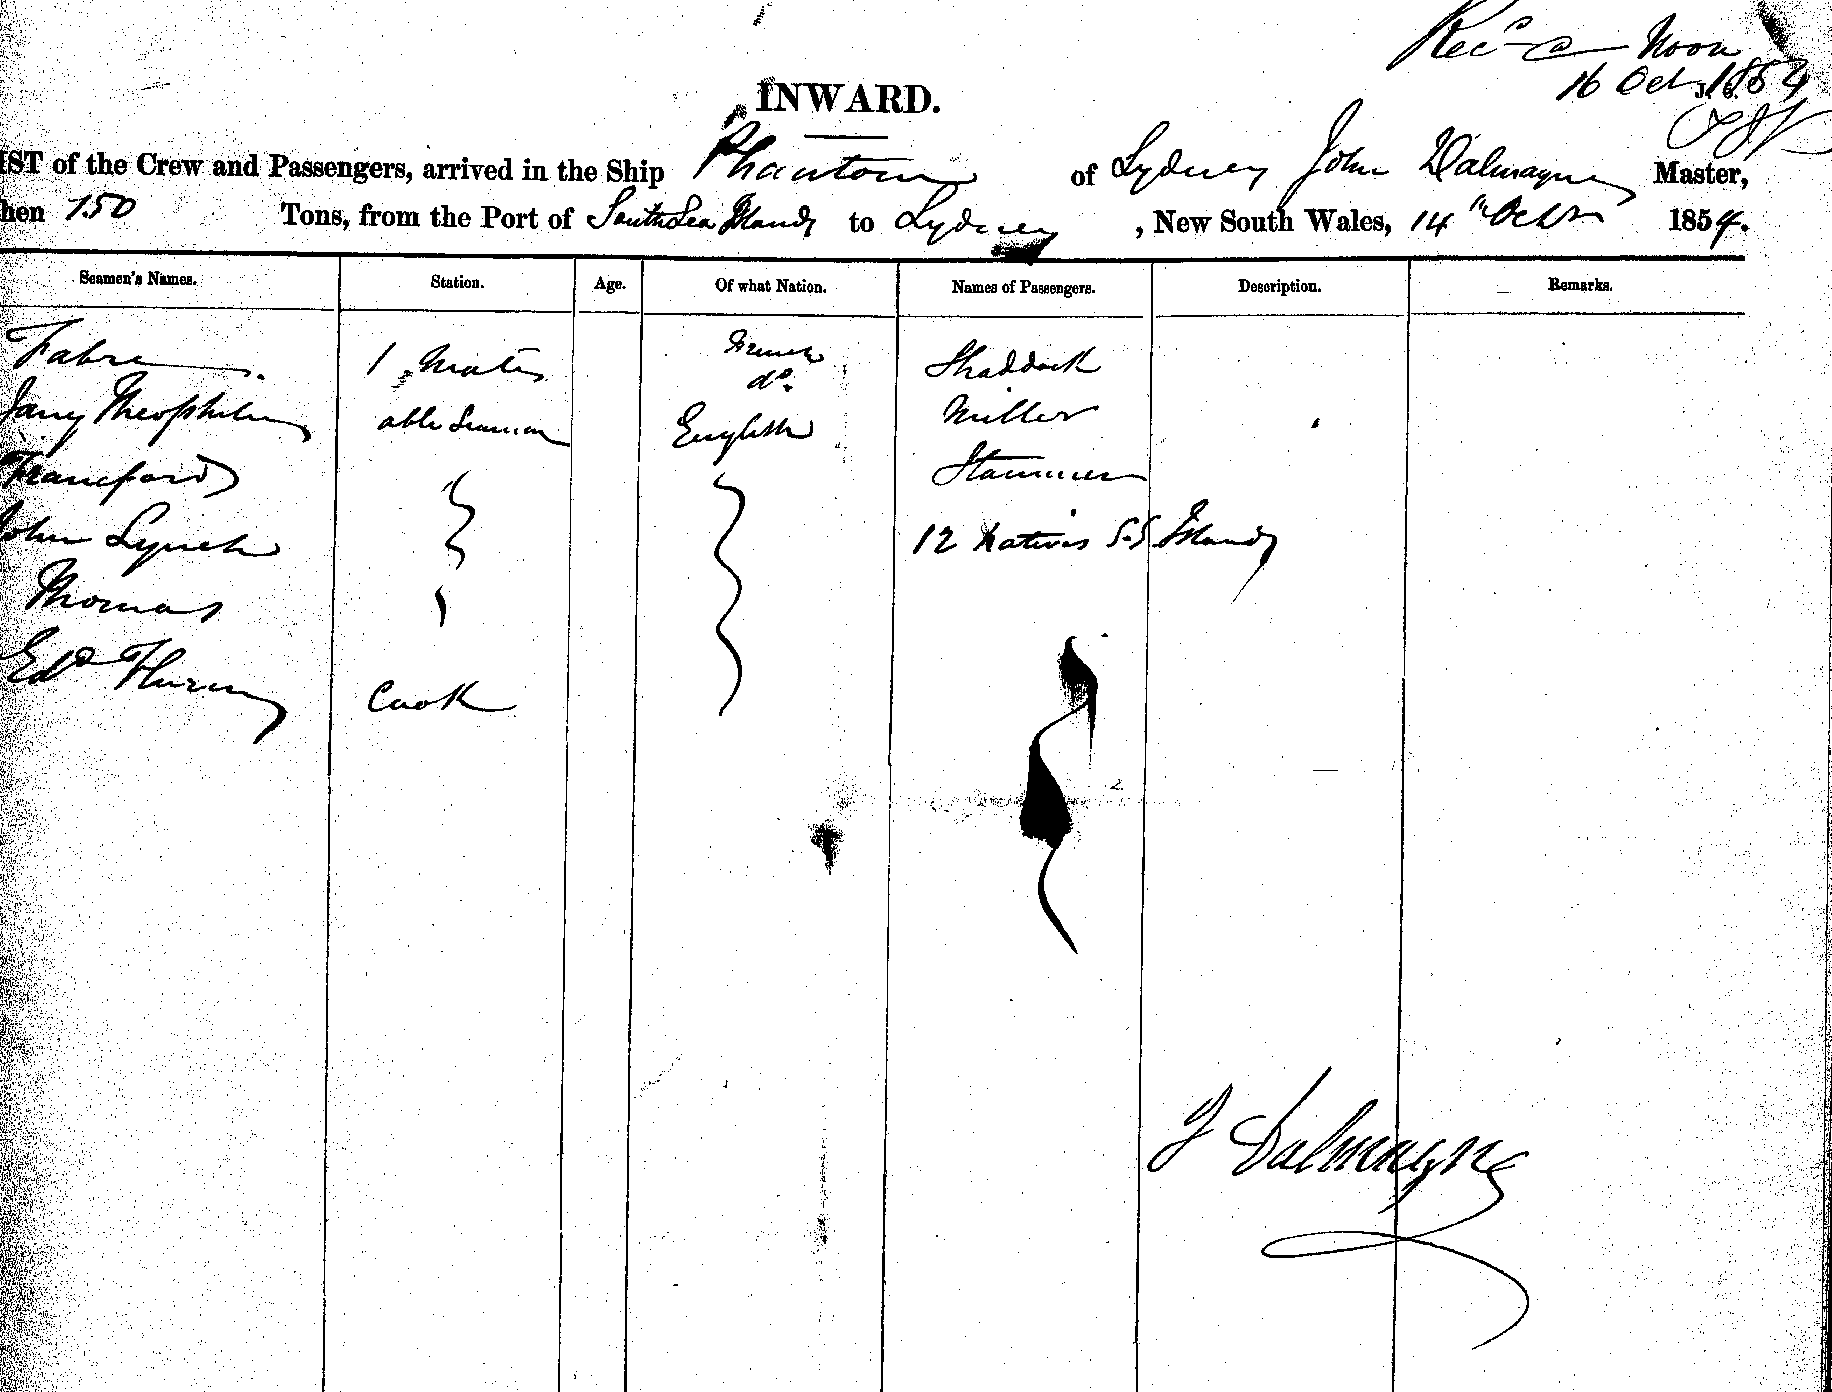 Recd @ Noon
16 Oct. 1854
INWARD.
IST of the Crew and Passengers, arrived in the Ship Phantom of Sydney John Dalmayne Master,
hen 150 Tons, from the Port of South Sea Islands to Sydney, New South Wales, 14th Octbr 1854.
Seamen's Names. Station. Age. Of what Nation. Names of Passengers. Description. Remarks.
Fabre 1 Mate French Shaddock
Theophilus able Seaman do. Miller
English
John Lynch 12 Natives S.S Islands
Thomas
Edd Cook
J Dalmayne